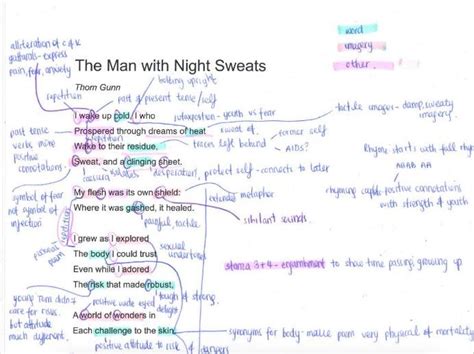 alliteration of c & k
gutturals - express
pain, fear, anxiety
word
imagery
other.
The Man with Night Sweats
Thom Gunn
bolting upright
repetition
past & present tense / self
I wake up cold, I who
juxtaposition - youth vs fear
tactile imagery - damp, sweaty
imagery.
past tense
verbs more
positive
connotations
Prospered through dreams of heat
repetition
sweat of
former self
Wake to their residue,
traces left behind
AIDS?
Rhyme starts with full rhyme
ABAB AA
Sweat, and a clinging sheet.
desperation, protect self - connects to later
rhyming couplet positive connotations
with strength of youth
symbol of fear
not symbol of
infection
My flesh was its own shield:
extended metaphor
Where it was gashed, it healed.
sibilant sounds
painful, tactile
repetition
I grew as I explored
sexual
undertones
The body I could trust
stanza 3+4 - enjambment to show time passing, growing up
Even while I adored
The risk that made robust,
tough & strong.
young man didn't
care for risks.
but attitude
much different.
positive wide eyed
delight
A world of wonders in
Each challenge to the skin.
synonyms for body - makes poem very physical & mortality
positive attitude to risk &
dangers